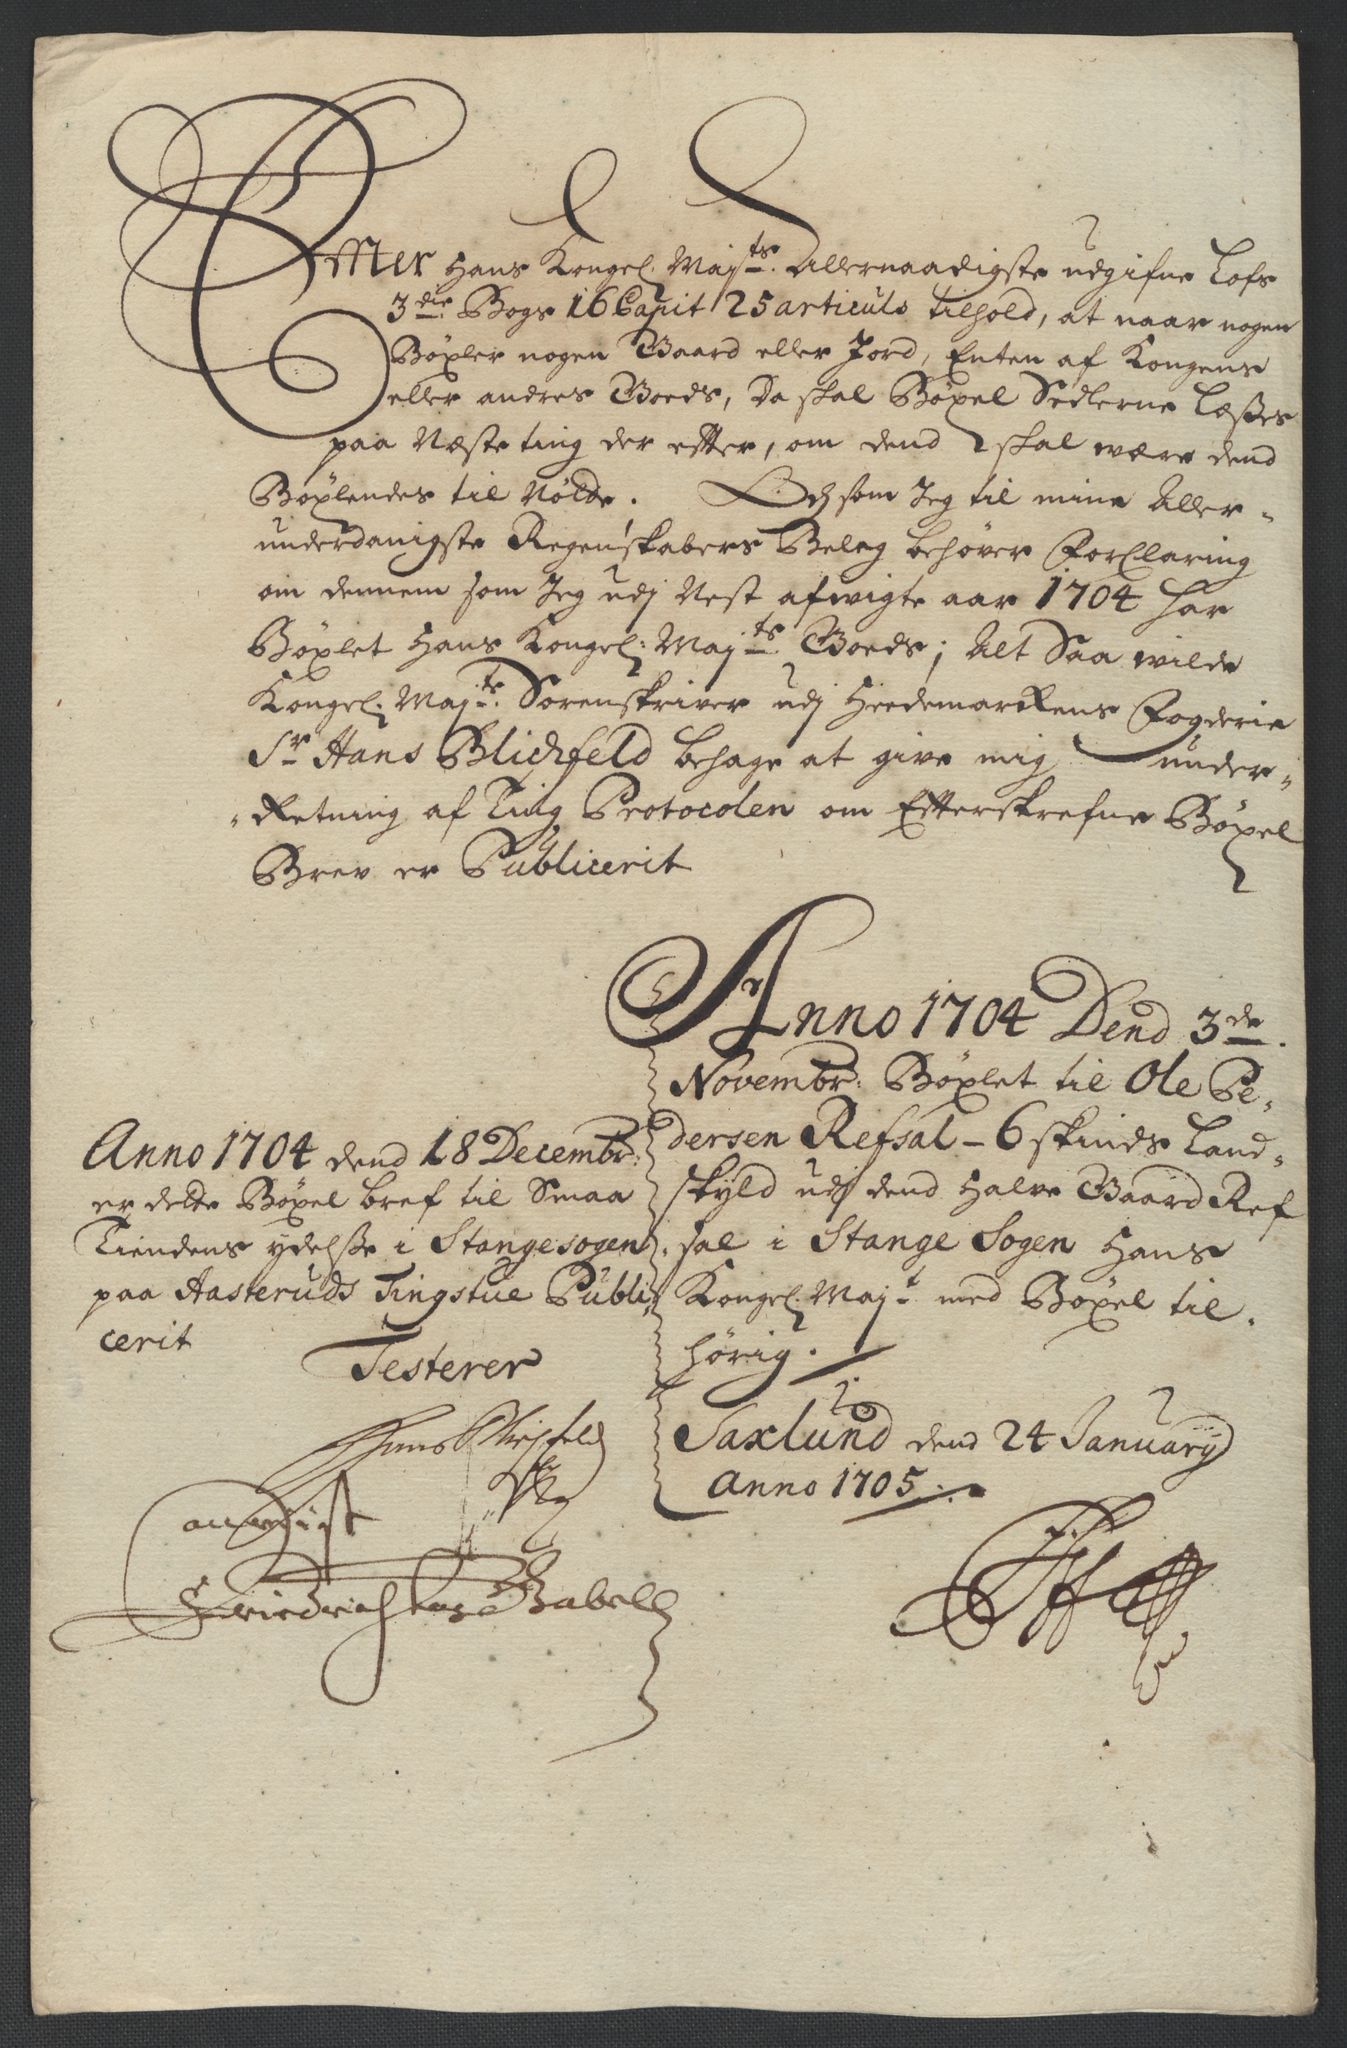 Effter Hans Kongel. Majts. Allernaadigste udgifne Lofs
3die Bogs 16 Capit 25 articuls tilhold, at naar nogen
Böxler nogen Gaard eller Jord, Enten af Kongens
eller andres Goeds, Da skal Böxel Sedlerne Læsses
paa Næste ting der effter, om dend skal være dend
Böxlendes til Nölde. Och som Jeg til mine Aller-
underdanigste Regenskabers Beleg behöver Forclaring
om dennem som Jeg udj Nest afwigte aar 1704 har
Böxlet Hans Kongel: Majts. Goeds; Alt Saa wilde
Kongel. Majts. Sorenskriver udj Heedemarckens Fogderie
Sr. Hans Blichfeld behage at give mig under-
Retning af Ting Protocolen om Effterskrefne Böxel
Brev er Publicerit
Anno 1704 Dend 3de.
Novembr: Böxlet til Ole Pe-
dersen Refsal - 6 skinds Land-
skyld udj dend Halve Gaard Ref
sal i Stange Sogen Hans
Kongel. Majt. med Böxel til-
hörig.
Saxlund dend 24 January
Anno 1705.
Anno 1704 dend 18 Decembr:
er dette Böxel bref til Smaa
Tiendens ydelsse i Stange sogen
paa Aasteruds Tingstue Publi-
cerit
Testerer
Hans Blichfeld